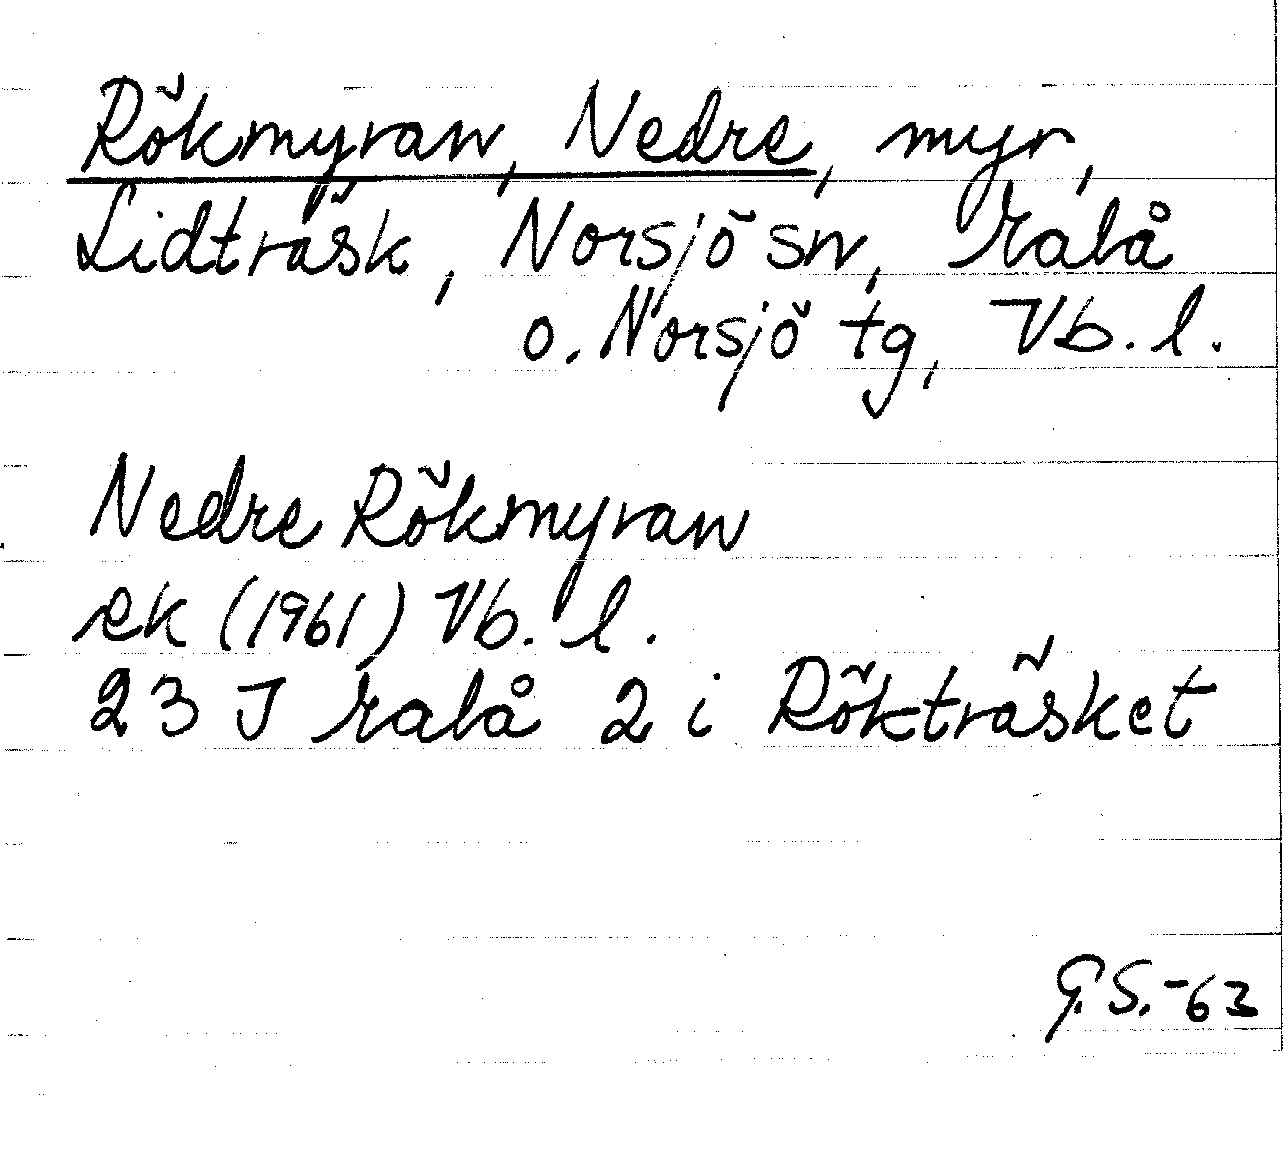 Rökmyran, Nedre, myr,
Lidträsk, Norsjö sn, Malå
o. Norsjö tg, Vb. l.
Nedre Rökmyran
ek (1961) Vb. l.
23 J Malå 2 i Rökträsket
G.S.-63